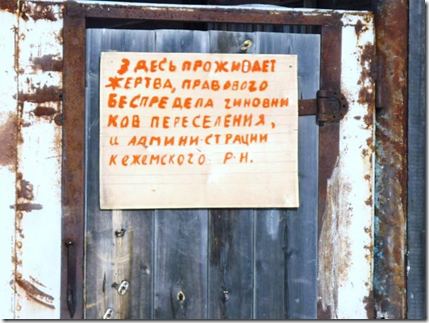 ЗДЕСЬ ПРОЖИВАЕТ
ЖЕРТВА, ПРАВОВОГО
БЕСПРЕДЕЛА ЧИНОВНИ
КОВ ПЕРЕСЕЛЕНИЯ,
и АДМИНИ-СТРАЦИИ
КЕЖЕМСКОГО Р-Н.